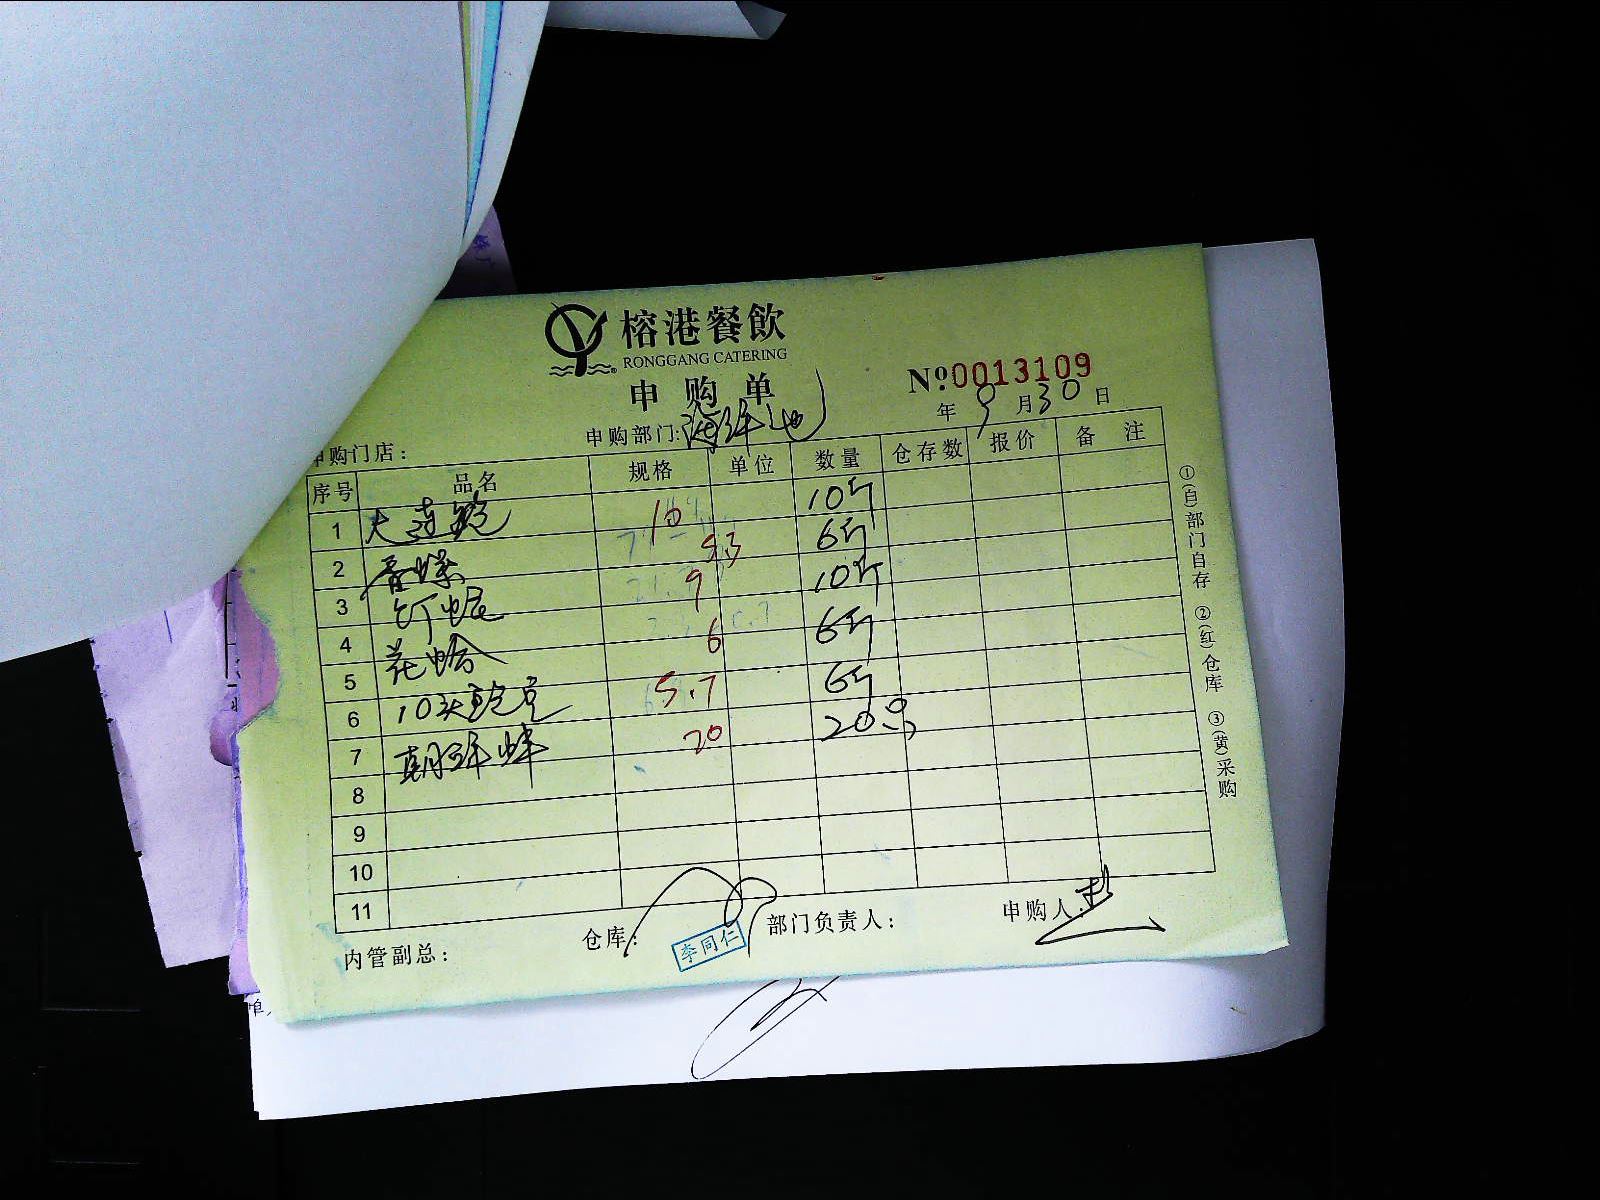 榕港餐飲
RONGGANG CATERING
申购单
Nº:0013109
年 9 月 30 日
申购门店：
申购部门：海鲜池
序号 品名 规格 单位 数量 仓存数 报价 备注
1 大连鲍 16 10斤
2 香螺 5.3 6斤
3 钉螺 9 10斤
4 花蛤 6 6斤
5 10头鲍 5.7 6斤
6 20 20只
7 朝鲜蚌
8
9
10
11
内管副总：
仓库：
李同仁
部门负责人：
申购人：
①(白)部门自存 ②(红)仓库 ③(黄)采购